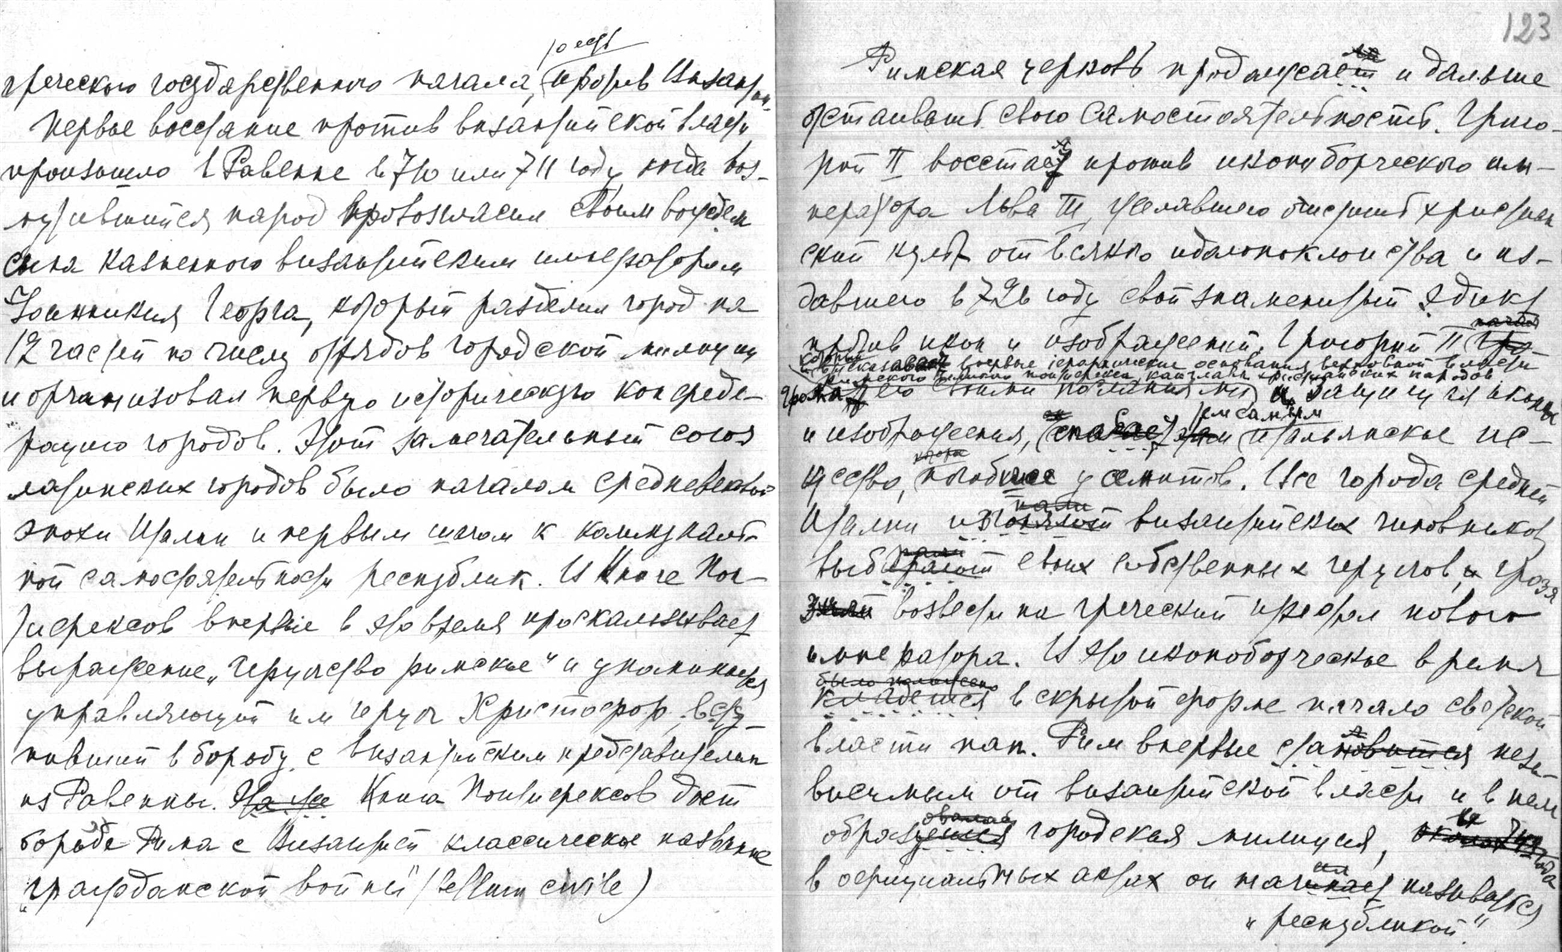 то есть
греческого государственного начала, против Византии.
Первое восстание против византийской власти
произошло в Равенне в 710 или 711 году, когда воз-
мутившийся народ провозгласил своим вождем
сына казненного византийским императором
Иоанникия Георга, который разделил город на
12 частей по числу отрядов городской милиции
и организовал первую историческую конфеде-
рацию городов. Этот замечательный союз
латинских городов было началом средневековой
эпохи Италии и первым шагом к коммунальной
самостоятельности республик. В Книге Пон-
тифексов впервые в это время проскальзывает
выражение „герцогство римское" и упоминается
управляющий им герцог Христофор, всту-
пивший в борьбу с византийским представителем
из Равенны. Эта же Книга Понтифексов дает
борьбе Рима с Византией классическое название
„гражданской войны" (bellum civile)
123
Римская церковь продолжает и дальше
отстаивать свою самостоятельность. Григо-
рий II восстает против иконоборческого им-
ператора Льва III, желавшего очистить христиан
ский культ от всякого идолопоклонства и из-
давшего в 726 году свой знаменитый эдикт
против икон и изображений. Григорий II
который высказывает впервые иерархические основания верховной власти
римского понтифекса народов
своими посланиями и защищая иконы
и изображения, тем самым итальянское ис-
кусство, погибшее у семитов. Все города средней
Италии изгоняют византийских чиновников
выбирают своих собственных герцогов, грозя
возвести на греческий престол нового
императора. В это иконоборческое время
было положено
кладется в скрытой форме начало светской
власти пап. Рим впервые становится неза-
висимым от византийской власти и в нем
образуется городская милиция,
в официальных актах он начинает называться
„республикой"